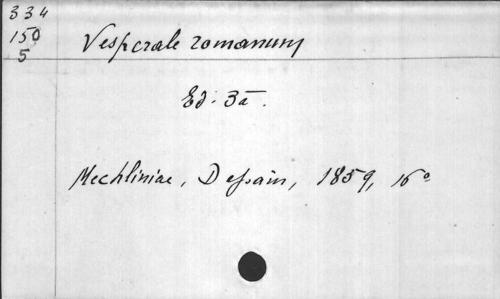 334
150
5
Vesperale romanum
Ed. 3a.
Mechliniae, Dessain, 1859, 16°